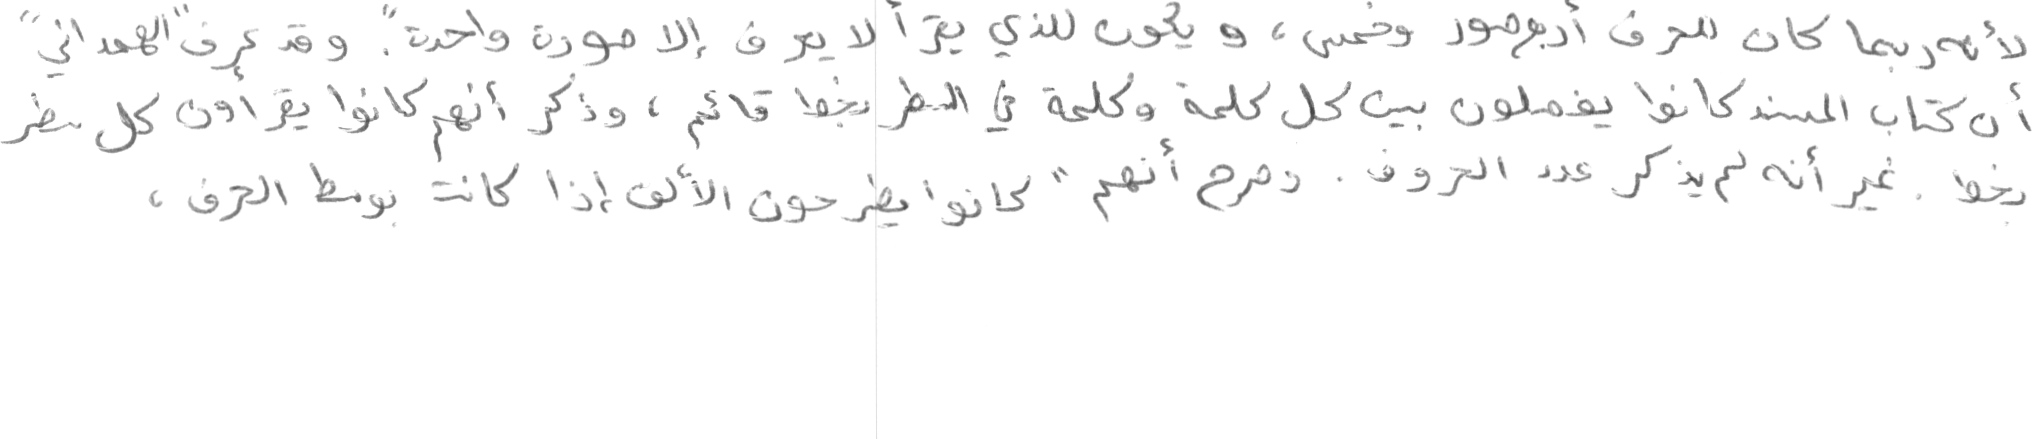 لأنه ربما كان للحرف أربع صور وخمس، ويكون للذي يقرأ لا يعرف إلا صورة واحدة". وقد عرف "الهمداني"
أن كتاب المسند كانوا يفصلون بين كل كلمة وكلمة في السطر بخط قائم، وذكر أنهم كانوا يقرأون كل سطر
بخط. غير أنه لم يذكر عدد الحروف. وصرح أنهم "كانوا يطرحون الألف إذا كانت بوسط الحرف،